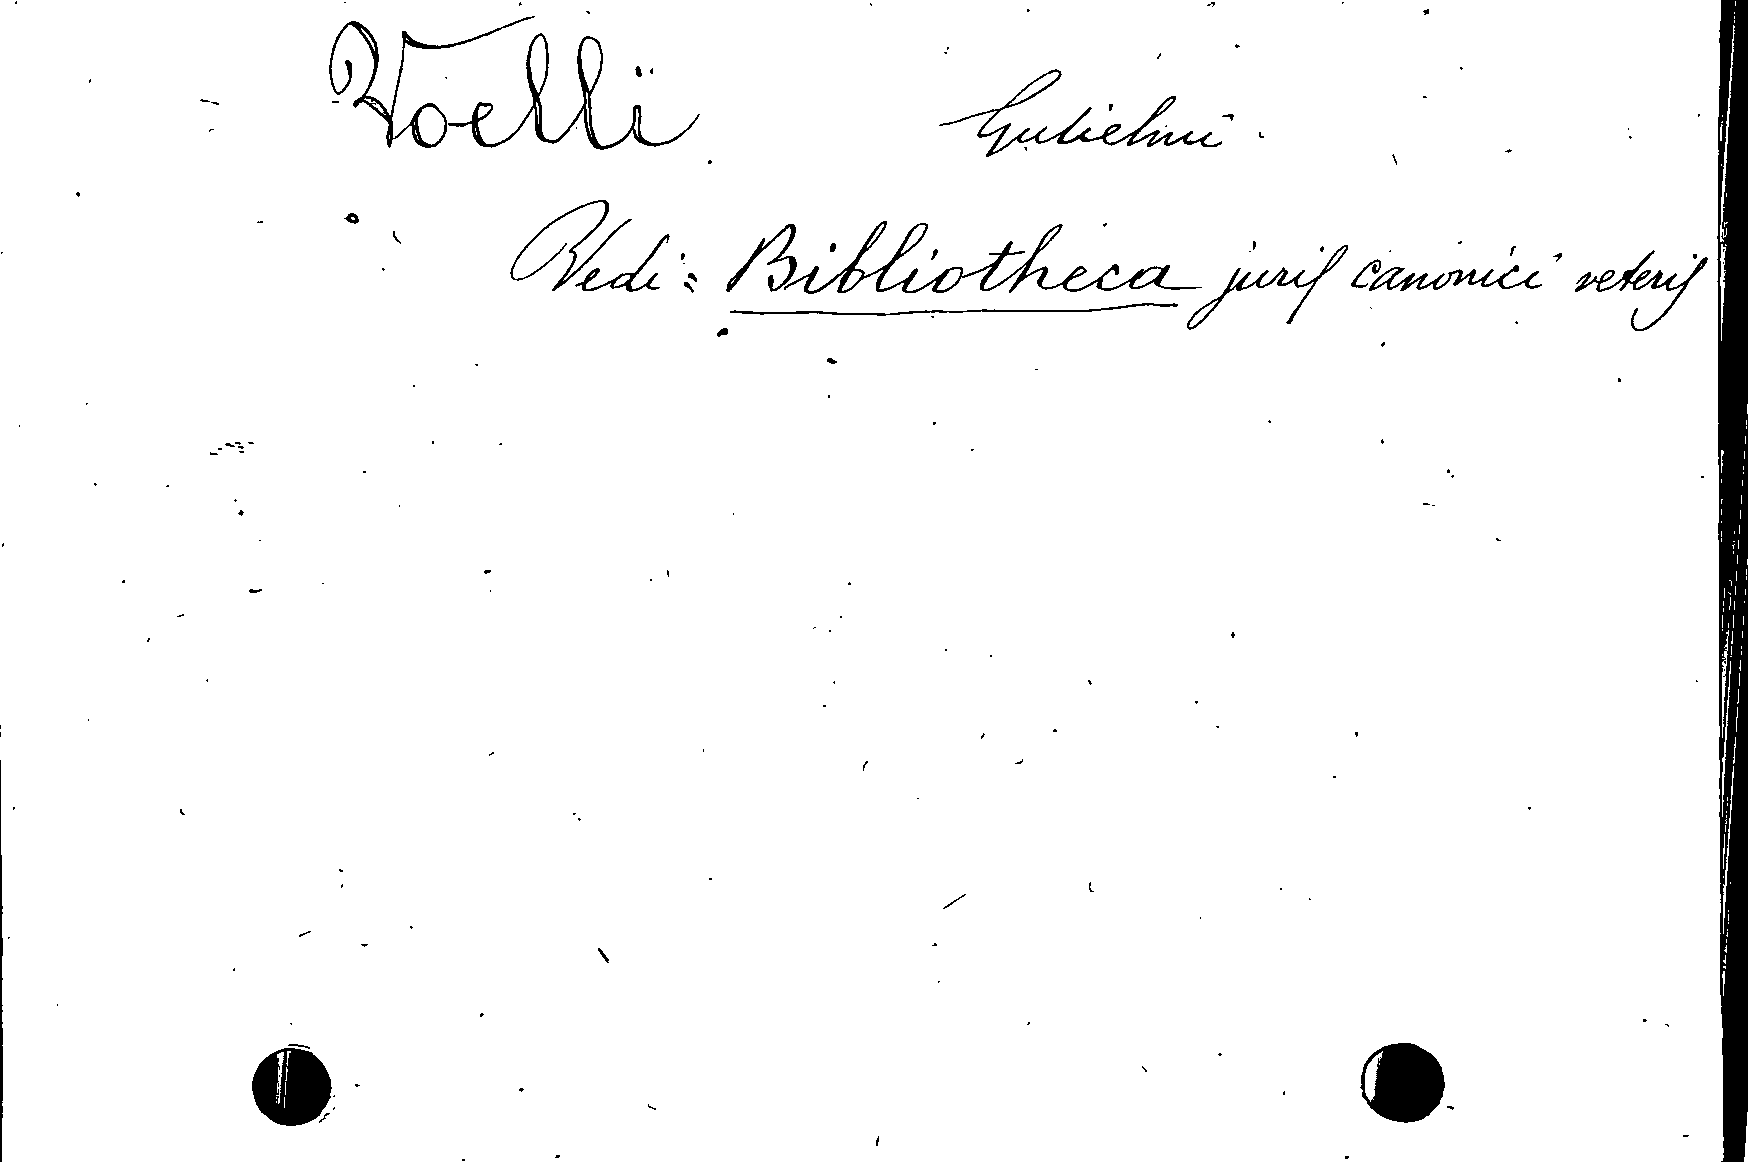 Voelli Gulielmi
Vedi: Bibliotheca juris canonici veteris